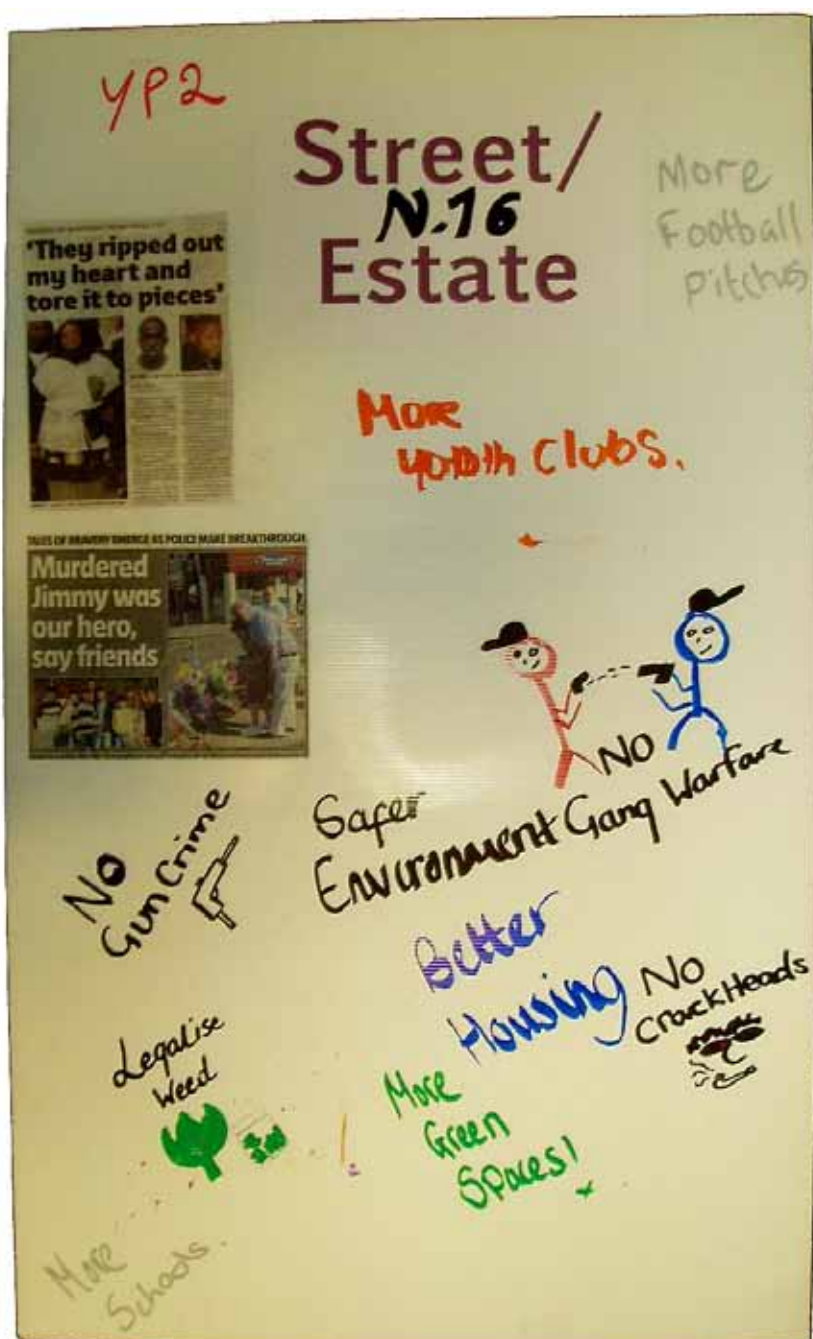 YP2
Street/
N.16
Estate
More
Football
Pitches
'They ripped out
my heart and
tore it to pieces'
More
youth Clubs.
TALES OF BRAVERY EMERGE AS POLICE MAKE BREAKTHROUGH
Murdered
Jimmy was
our hero,
say friends
NO
Gang Warfare
No
Gun Crime
Safer
Environment
Better
Housing
NO
CrackHeads
Legalise
Weed
More
Green
Spaces!
More
Schools.